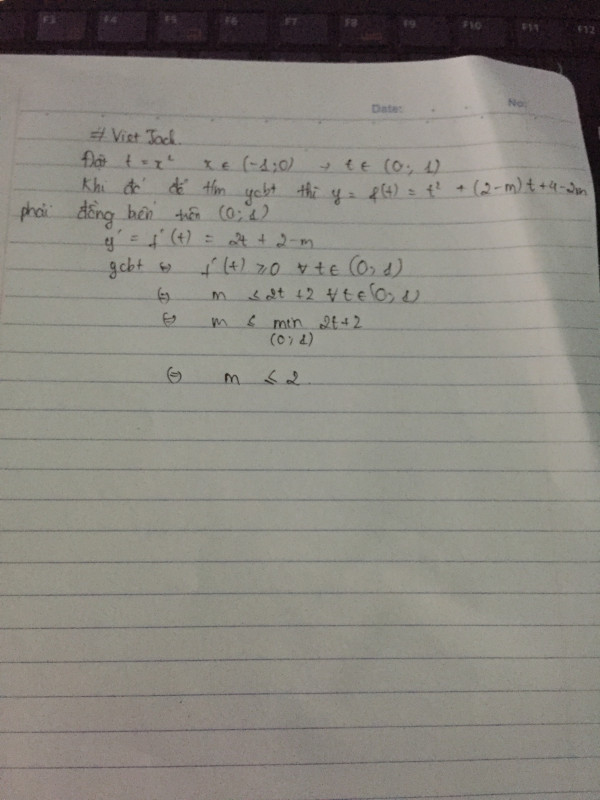 F3 F4 F5 F6 F7 F8 F9 F10 F11 F12
Date: No:
# Viet Jack.
Đặt t = x² x ∈ (-1;0) → t ∈ (0; 1)
Khi đó để tm ycbt thì y = f(t) = t² + (2-m)t+4-2m
phải đồng biến trên (0; 1)
y' = f'(t) = 2t + 2-m
ycbt ⇔ f'(t) ≥0 ∀ t ∈ (0; 1)
⇔ m ≤ 2t +2 ∀ t ∈ (0; 1)
⇔ m ≤ min 2t+2
(0; 1)
⇔ m ≤ 2.